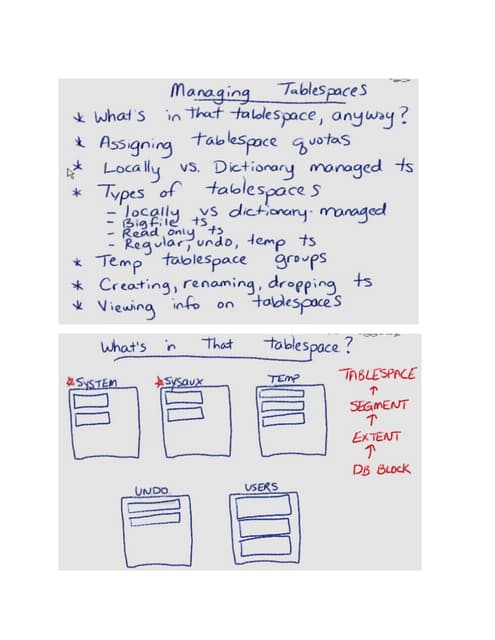 Managing Tablespaces
* What's in that tablespace, anyway?
* Assigning tablespace quotas
* Locally vs. Dictionary managed ts
* Types of tablespaces
- locally vs dictionary-managed
- Bigfile ts
- Read only ts
- Regular, undo, temp ts
* Temp tablespace groups
* Creating, renaming, dropping ts
* Viewing info on tablespaces
What's in That tablespace?
*SYSTEM *SYSAUX TEMP
TABLESPACE
↑
SEGMENT
↑
EXTENT
↑
DB BLOCK
UNDO USERS